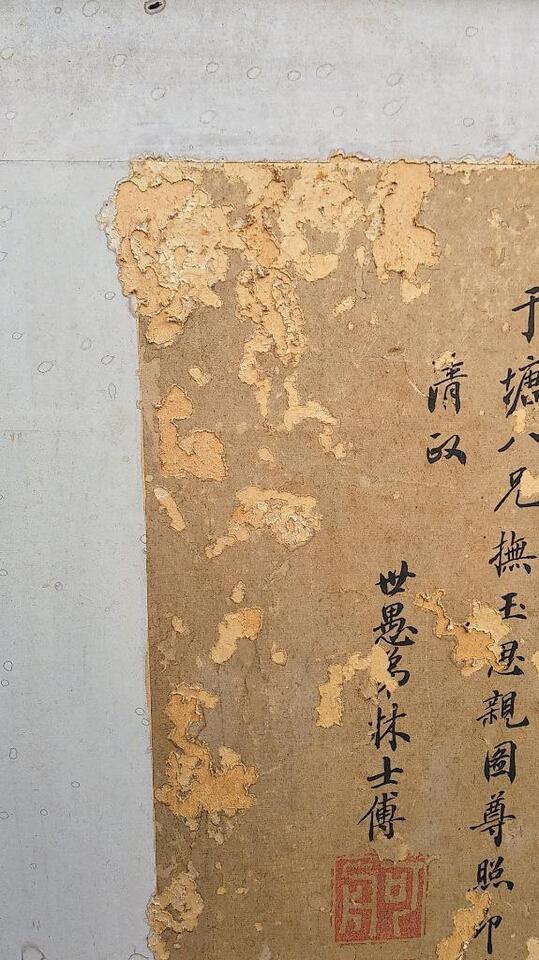 于塘八兄撫玉思親圖尊照印
清政
世愚弟林士傅